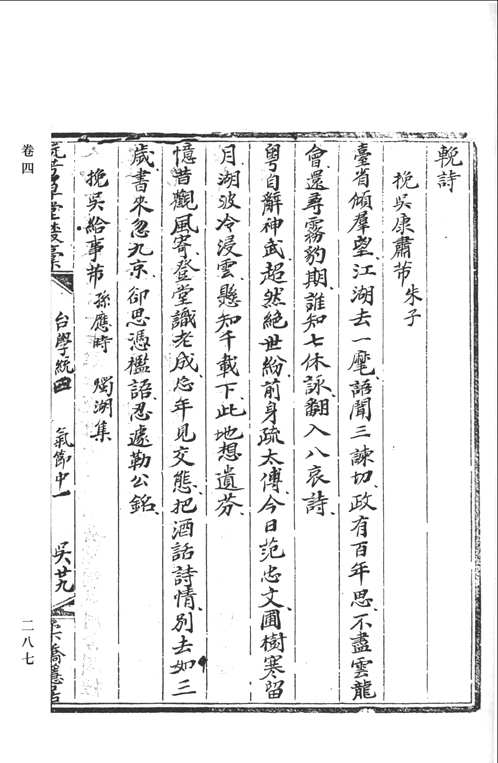 輓詩
挽吳康肅芾 朱子
臺省傾羣望江湖去一麾語聞三諫切政有百年思不盡雲龍
會還尋霧豹期誰知七休詠翻入八哀詩
粵自辭神武超然絕世紛前身疏太傅今日范忠文圃樹寒留
月湖波冷浸雲懸知千載下此地想遺芬
憶昔觀風寄登堂識老成忘年見交態把酒話詩情別去如三
歲書來忽九京卻思憑檻語忍遽勒公銘
挽吳給事芾 孫應時 燭湖集
台學統四 氣節中一 吳廿九
卷四
二八七